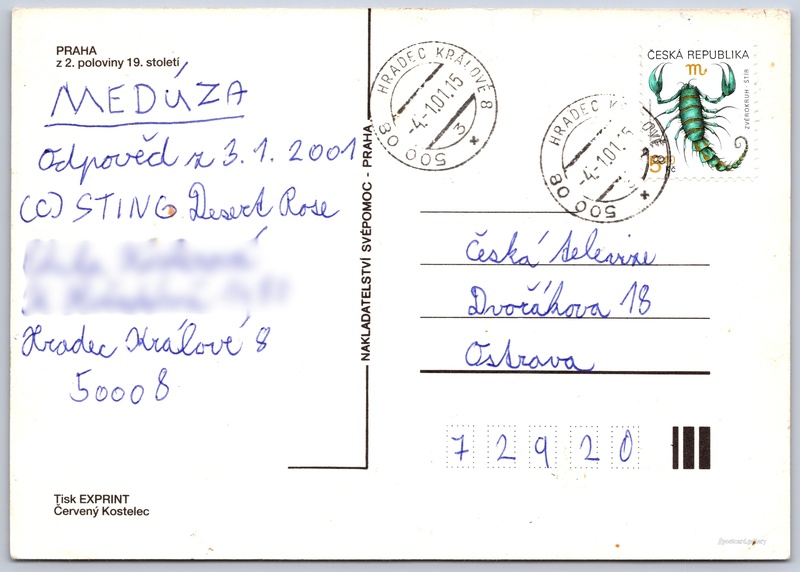 PRAHA
z 2. poloviny 19. století
MEDÚZA
Odpověd z 3.1. 2001
(C) STING Desert Rose
Hradec Králové 8
50008
Tisk EXPRINT
Červený Kostelec
NAKLADATELSTVÍ SVÉPOMOC - PRAHA
HRADEC KRÁLOVÉ 8
-4.-1.01.15
3
500 08 *
HRADEC KRÁLOVÉ 8
-4.-1.01.15
3
500 08 *
ČESKÁ REPUBLIKA
ZVĚROKRUH - ŠTÍR
Kč
Česká televize
Dvořákova 18
Ostrava
7 2 9 2 0